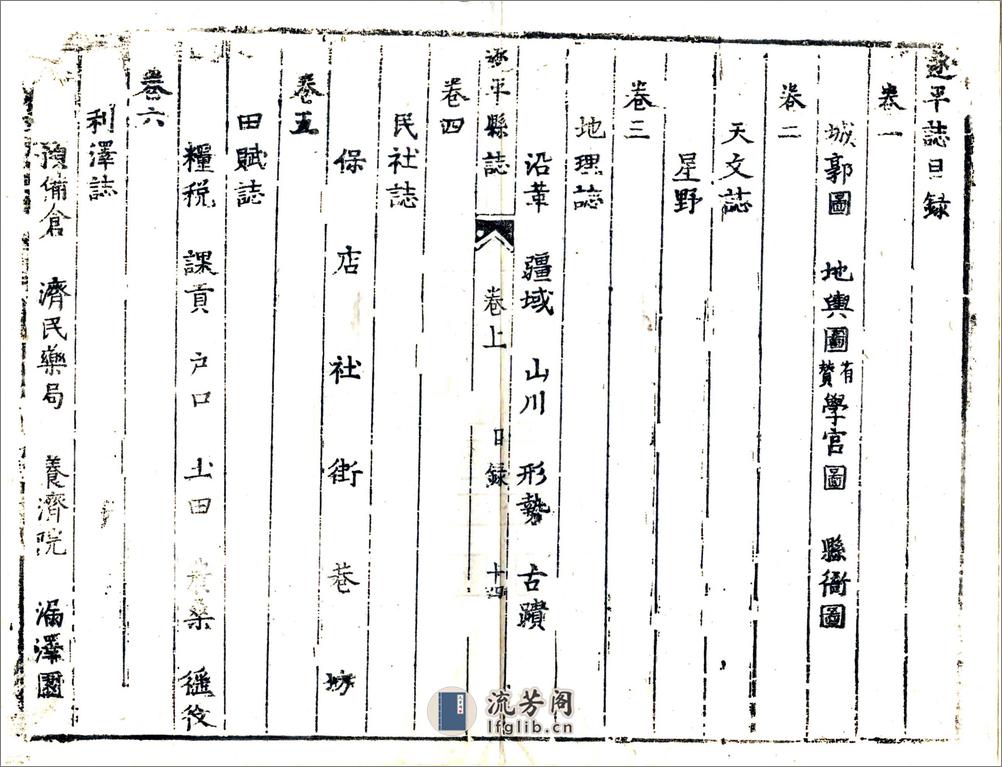 遂平誌目録
卷一
城郭圖 地輿圖 有贊 學宮圖 縣衙圖
卷二
天文誌
星野
卷三
地理誌
沿革 疆域 山川 形勢 古蹟
遂平縣誌 卷上 目録 十四
卷四
民社誌
保 店 社 街 巷 坊
卷五
田賦誌
糧稅 課貢 户口 土田 農桑 徭役
卷六
利澤誌
預備倉 濟民藥局 養濟院 漏澤園
流芳阁
lfglib.cn